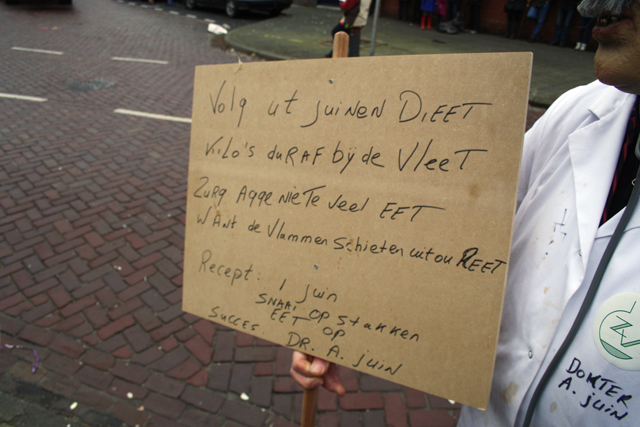 Volg ut juinen DiEET
Kilo's duRAF bij de VleeT
Zurg Agge nieTe veel EET
WANt de Vlammen schieten uit ou REET
Recept: 1 juin
SNAAI OP Stukken
EET OP
SUCCES DR. A. JUIN
DOKTER
A. JUIN